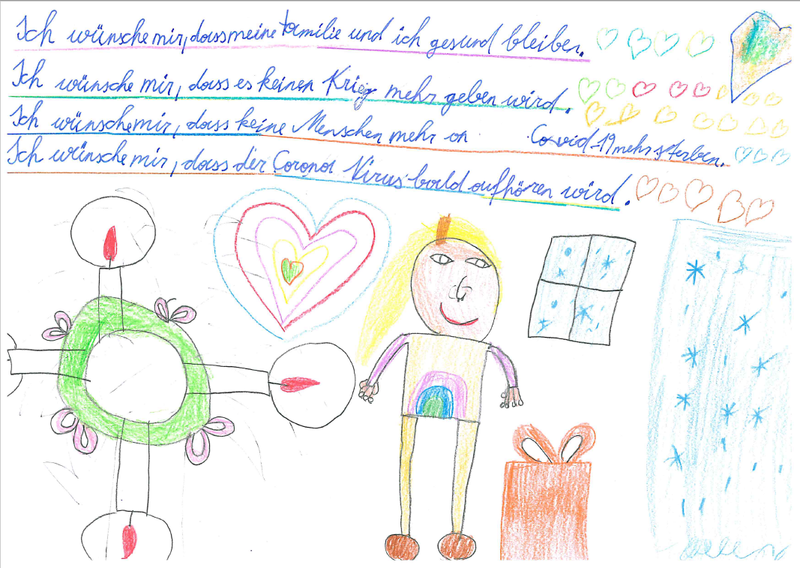 Ich wünsche mir, dass meine Familie und ich gesund bleiben.
Ich wünsche mir, dass es keinen Krieg mehr geben wird.
Ich wünsche mir, dass keine Menschen mehr an Covid-19 mehr sterben.
Ich wünsche mir, dass der Corona Virus bald aufhören wird.